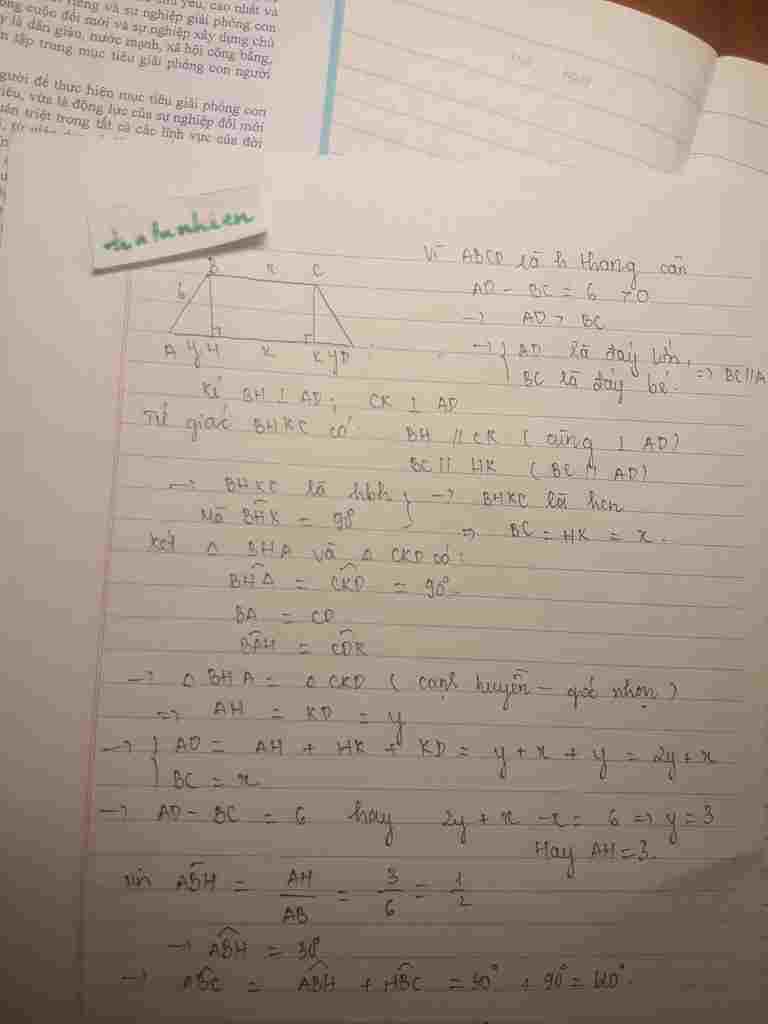 yếu, cao nhất và
riêng và sự nghiệp giải phóng con
ông cuộc đổi mới và sự nghiệp xây dựng chủ
y là dân giàu, nước mạnh, xã hội công bằng,
n tập trung mục tiêu giải phóng con người
gười để thực hiện mục tiêu giải phóng con
tiêu, vừa là động lực của sự nghiệp đổi mới
uán triệt trong tất cả các lĩnh vực của đời
B x C
6
A y H x K y D
Vì ABCD là h thang cân
AD - BC = 6 > 0
→ AD > BC
→ { AD là đáy lớn,
BC là đáy bé. => BC//A
Kẻ BH ⊥ AD; CK ⊥ AD
Tứ giác BHKC có BH // CK ( cùng ⊥ AD)
BC // HK ( BC // AD)
→ BHKC là hbh } → BHKC là hcn
Mà BHK = 90° => BC = HK = x.
Xét △ BHA và △ CKD có:
BHA = CKD = 90°
BA = CD
BAH = CDK
→ △ BHA = △ CKD ( cạnh huyền - góc nhọn )
=> AH = KD = y
→ { AD = AH + HK + KD = y + x + y = 2y + x
BC = x
→ AD - BC = 6 hay 2y + x - x = 6 => y = 3
Hay AH = 3.
sin ABH = AH/AB = 3/6 = 1/2
→ ABH = 30°
→ ABC = ABH + HBC = 30° + 90° = 120°.